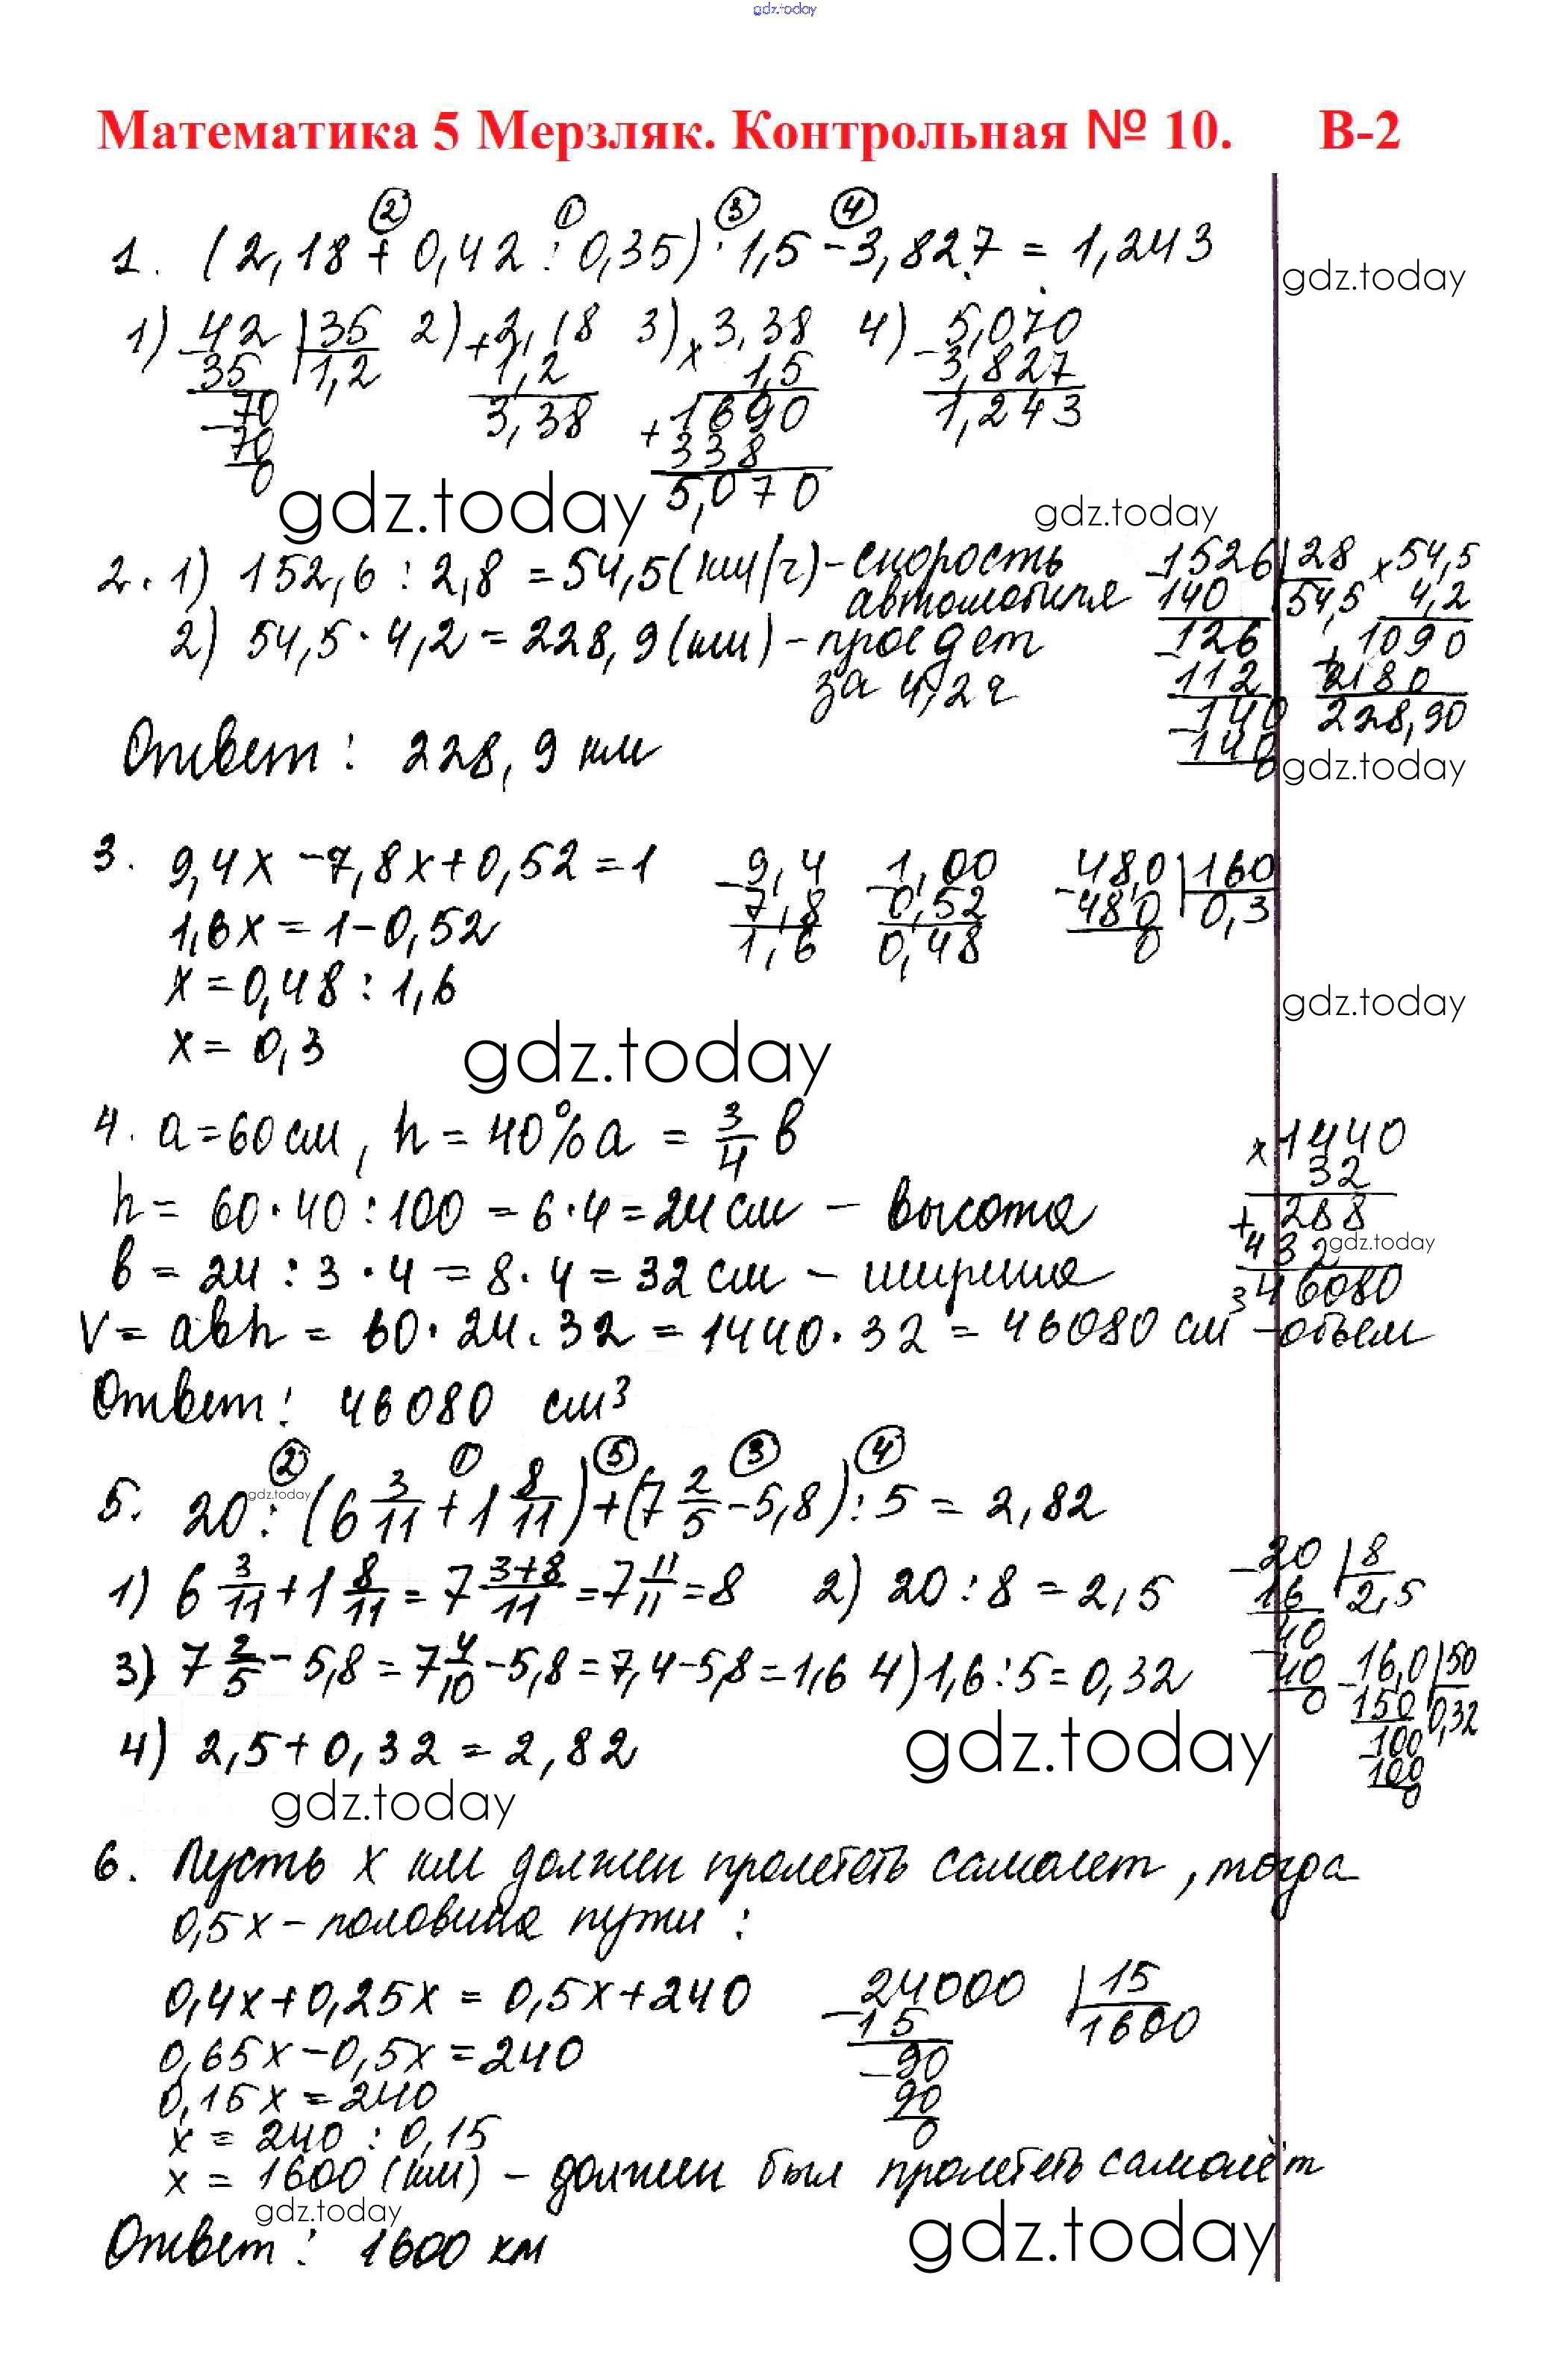 gdz.today
Математика 5 Мерзляк. Контрольная № 10. В-2
② ① ③ ④
1. (2,18 + 0,42 : 0,35) · 1,5 - 3,827 = 1,243
gdz.today
1) 42 | 35 2) + 2,18 3) × 3,38 4) - 5,070
- 35 | 1,2 1,2 1,5 3,827
70 3,38 + 1690 1,243
- 70 338
0 5,070
gdz.today
gdz.today
2. 1) 152,6 : 2,8 = 54,5 (км/ч) - скорость
автомобиля
2) 54,5 · 4,2 = 228,9 (км) - проедет
за 4,2 ч
Ответ: 228,9 км
- 1526 | 28 × 54,5
140 | 54,5 4,2
- 126 + 1090
112 2180
- 140 228,90
140
0
gdz.today
3. 9,4x - 7,8x + 0,52 = 1
1,6x = 1 - 0,52
x = 0,48 : 1,6
x = 0,3
- 9,4 - 1,00 - 48,0 | 160
7,8 0,52 480 | 0,3
1,6 0,48 0
gdz.today
gdz.today
4. a = 60 см, h = 40% a = 3/4 b
h = 60 · 40 : 100 = 6 · 4 = 24 см - высота
b = 24 : 3 · 4 = 8 · 4 = 32 см - ширина
V = abh = 60 · 24 · 32 = 1440 · 32 = 46080 см³ - объем
Ответ: 46080 см³
× 1440
32
+ 288
432
46080
gdz.today
② ① ⑤ ③ ④
5. 20 : (6 3/11 + 1 8/11) + (7 2/5 - 5,8) : 5 = 2,82
gdz.today
1) 6 3/11 + 1 8/11 = 7 3+8/11 = 7 11/11 = 8 2) 20 : 8 = 2,5
3) 7 2/5 - 5,8 = 7 4/10 - 5,8 = 7,4 - 5,8 = 1,6 4) 1,6 : 5 = 0,32
4) 2,5 + 0,32 = 2,82
- 20 | 8
16 | 2,5
- 40
40
0
- 16,0 | 50
150 | 0,32
- 100
100
0
gdz.today
gdz.today
6. Пусть x км должен пролететь самолет, тогда
0,5x - половина пути :
0,4x + 0,25x = 0,5x + 240
0,65x - 0,5x = 240
0,15x = 240
x = 240 : 0,15
x = 1600 (км) - должен был пролететь самолёт
Ответ: 1600 км
- 24000 | 15
15 | 1600
- 90
90
0
gdz.today
gdz.today